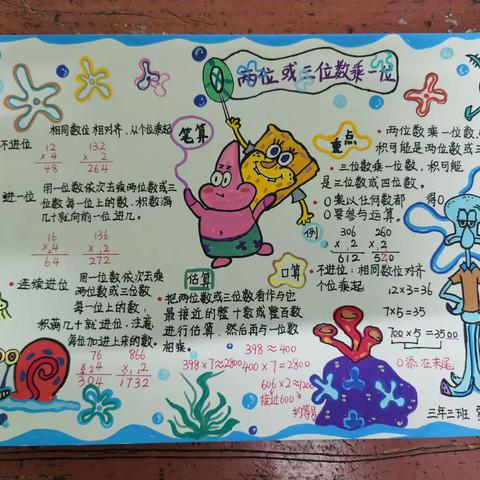 两位或三位数乘一位
不进位
相同数位相对齐，从个位乘起
12
×4
48
132
× 2
264
进一位
用一位数依次去乘两位数或三
位数每一位上的数，积数满
几十就向前一位进几。
16
×4
64
136
×.2
272
连续进位
用一位数依次去乘
两位数或三位数
每一位上的数，
积满几十就进位，注意
每位加进上来的数。
76
304
866
×, 2
1732
笔算
估算
把两位数或三位数看作与它
最接近的整十数或整百数
进行估算，然后再与一位数
相乘。
398≈400
398×7≈2800
400×7=2800
606×2≈1200
接近600
约等号
口算
不进位：相同数位对齐
个位乘起
12×3=36
7×5=35
700×5=3500
0添在末尾
重点
两位数乘一位数，
积可能是两位数或三
三位数乘一位数，积可能
是三位数或四位数。
0乘以任何数都得0
0要参与运算。
例
306
×.2
612
260
×.2
520
三年三班